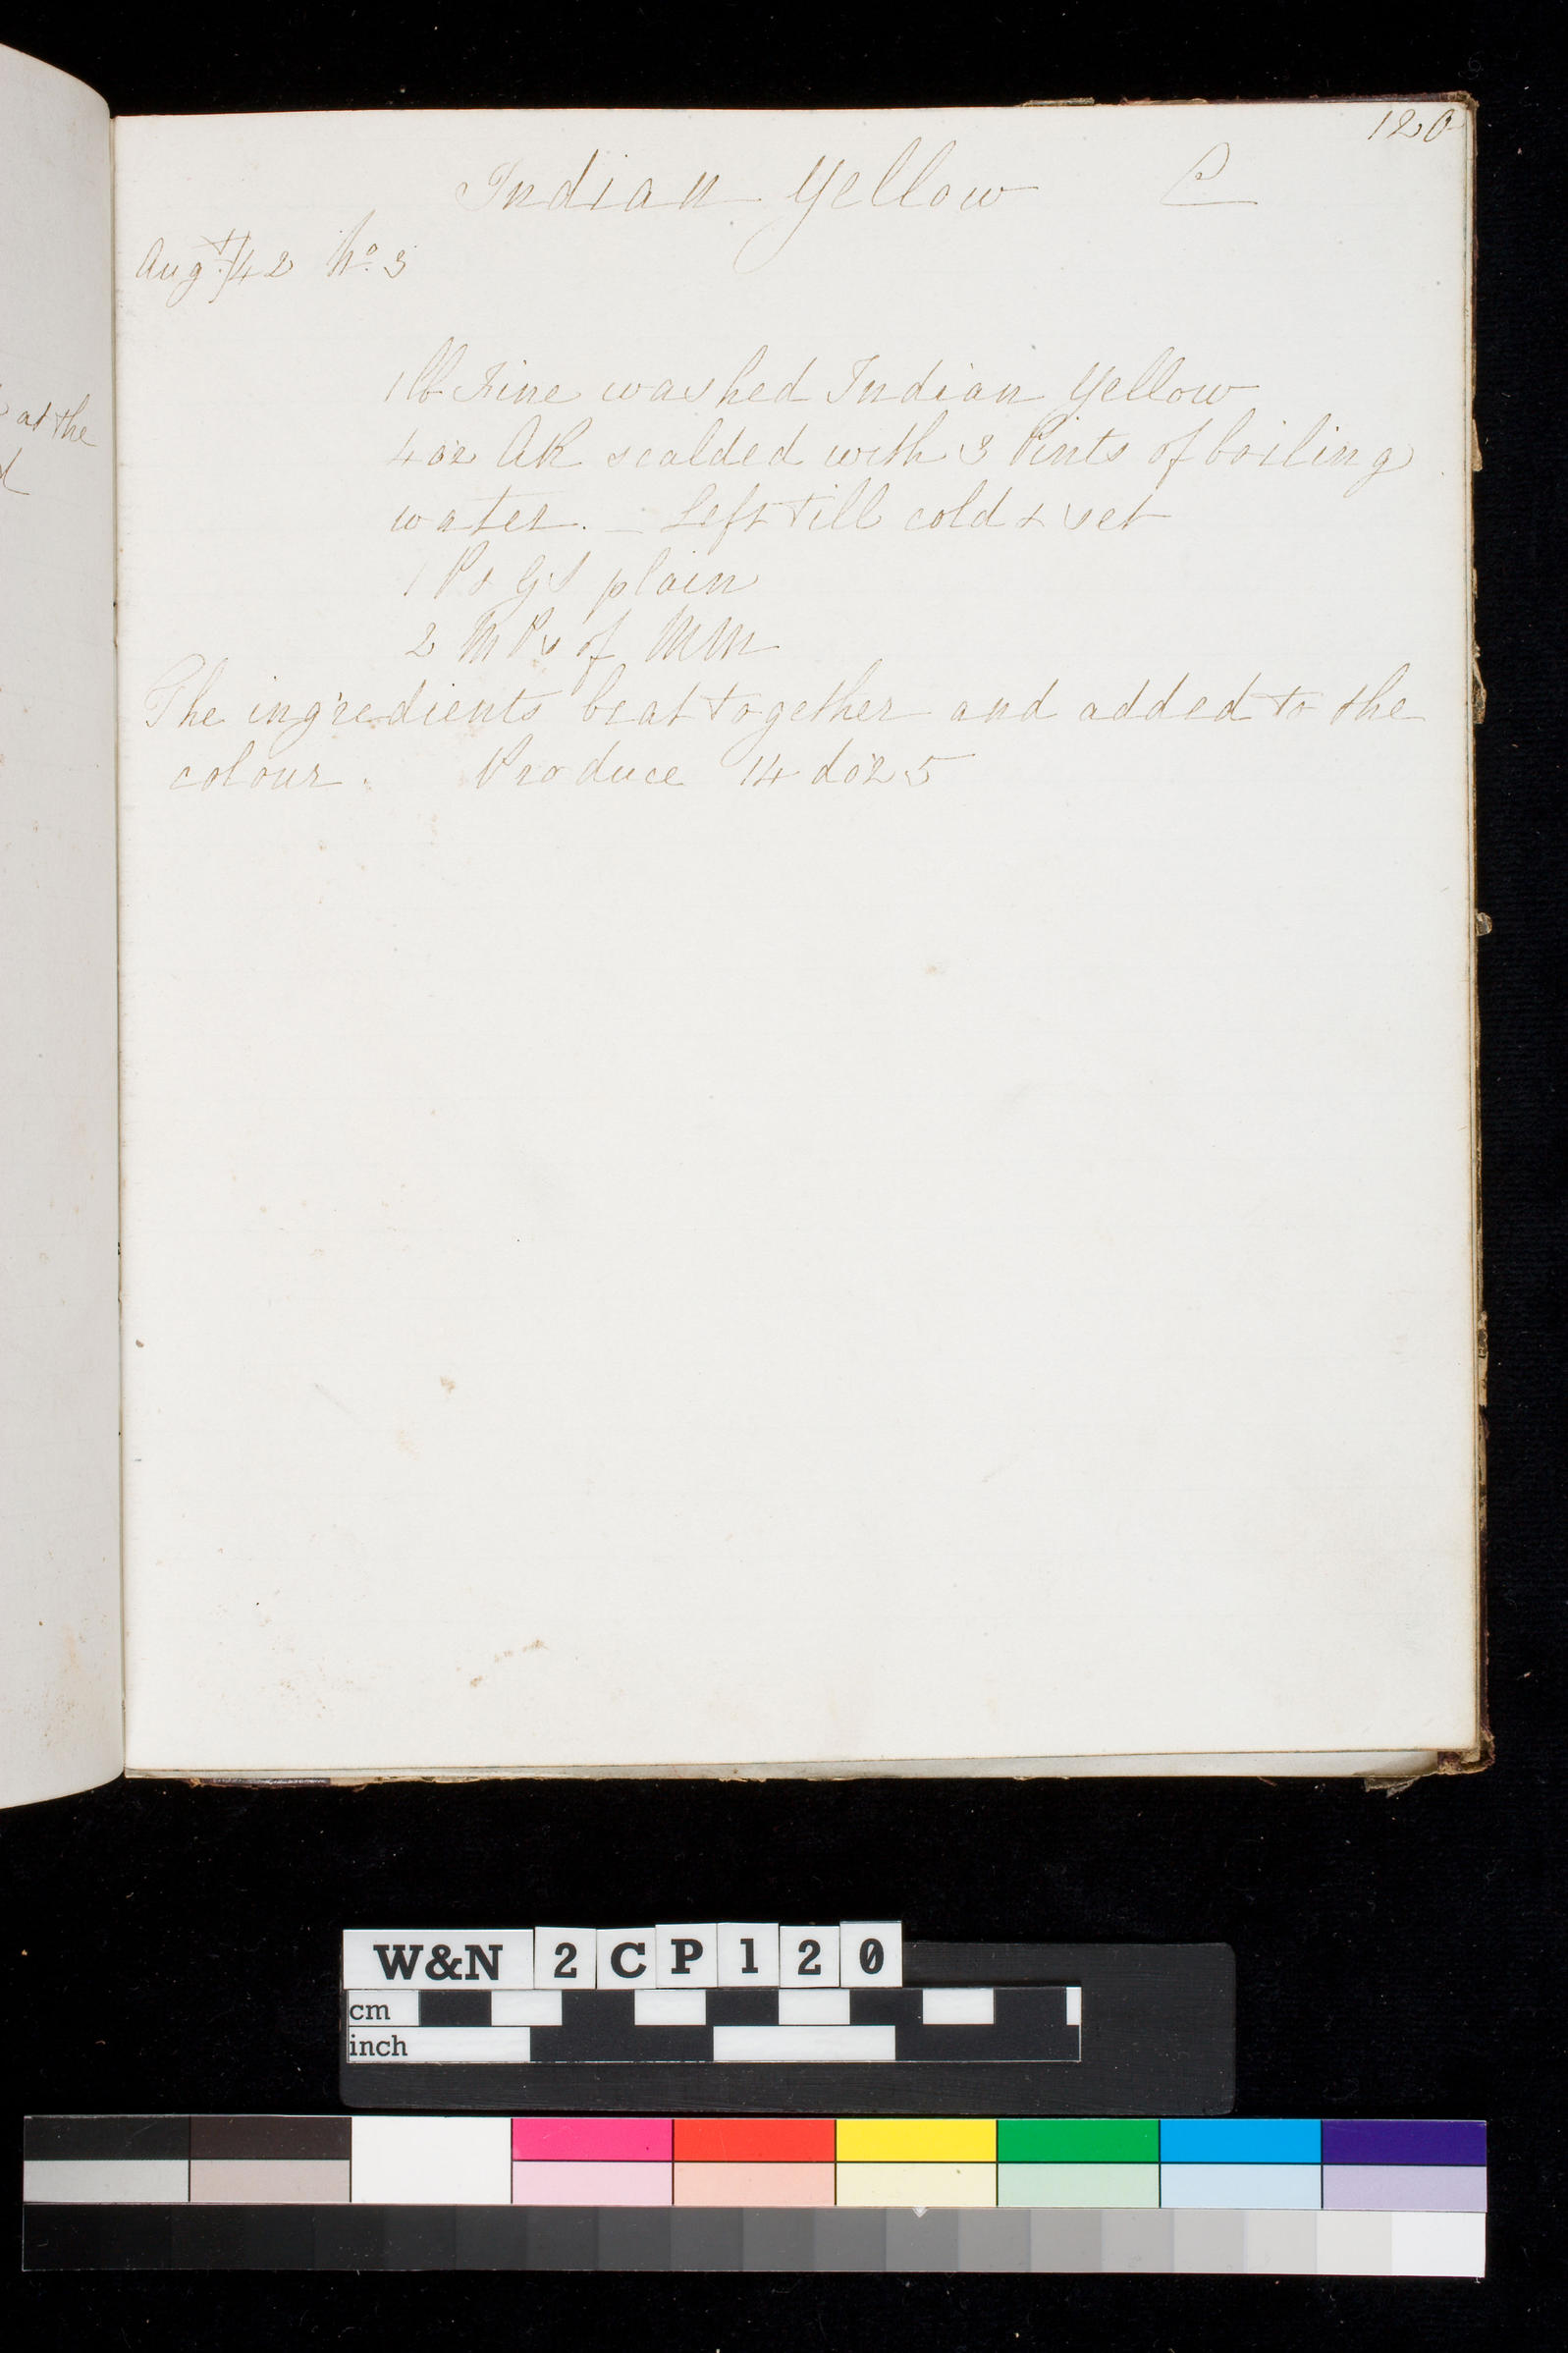 120
Indian Yellow C
Augt/42 No 3
1 lb Fine washed Indian Yellow
4 oz AR scalded with 3 Pints of boiling
water. – Left till cold & set
1 Pt GS plain
2 M Ps of MM
The ingredients beat together and added to the
colour. Produce 14 doz 5
at the
d
W&N 2CP120
cm
inch